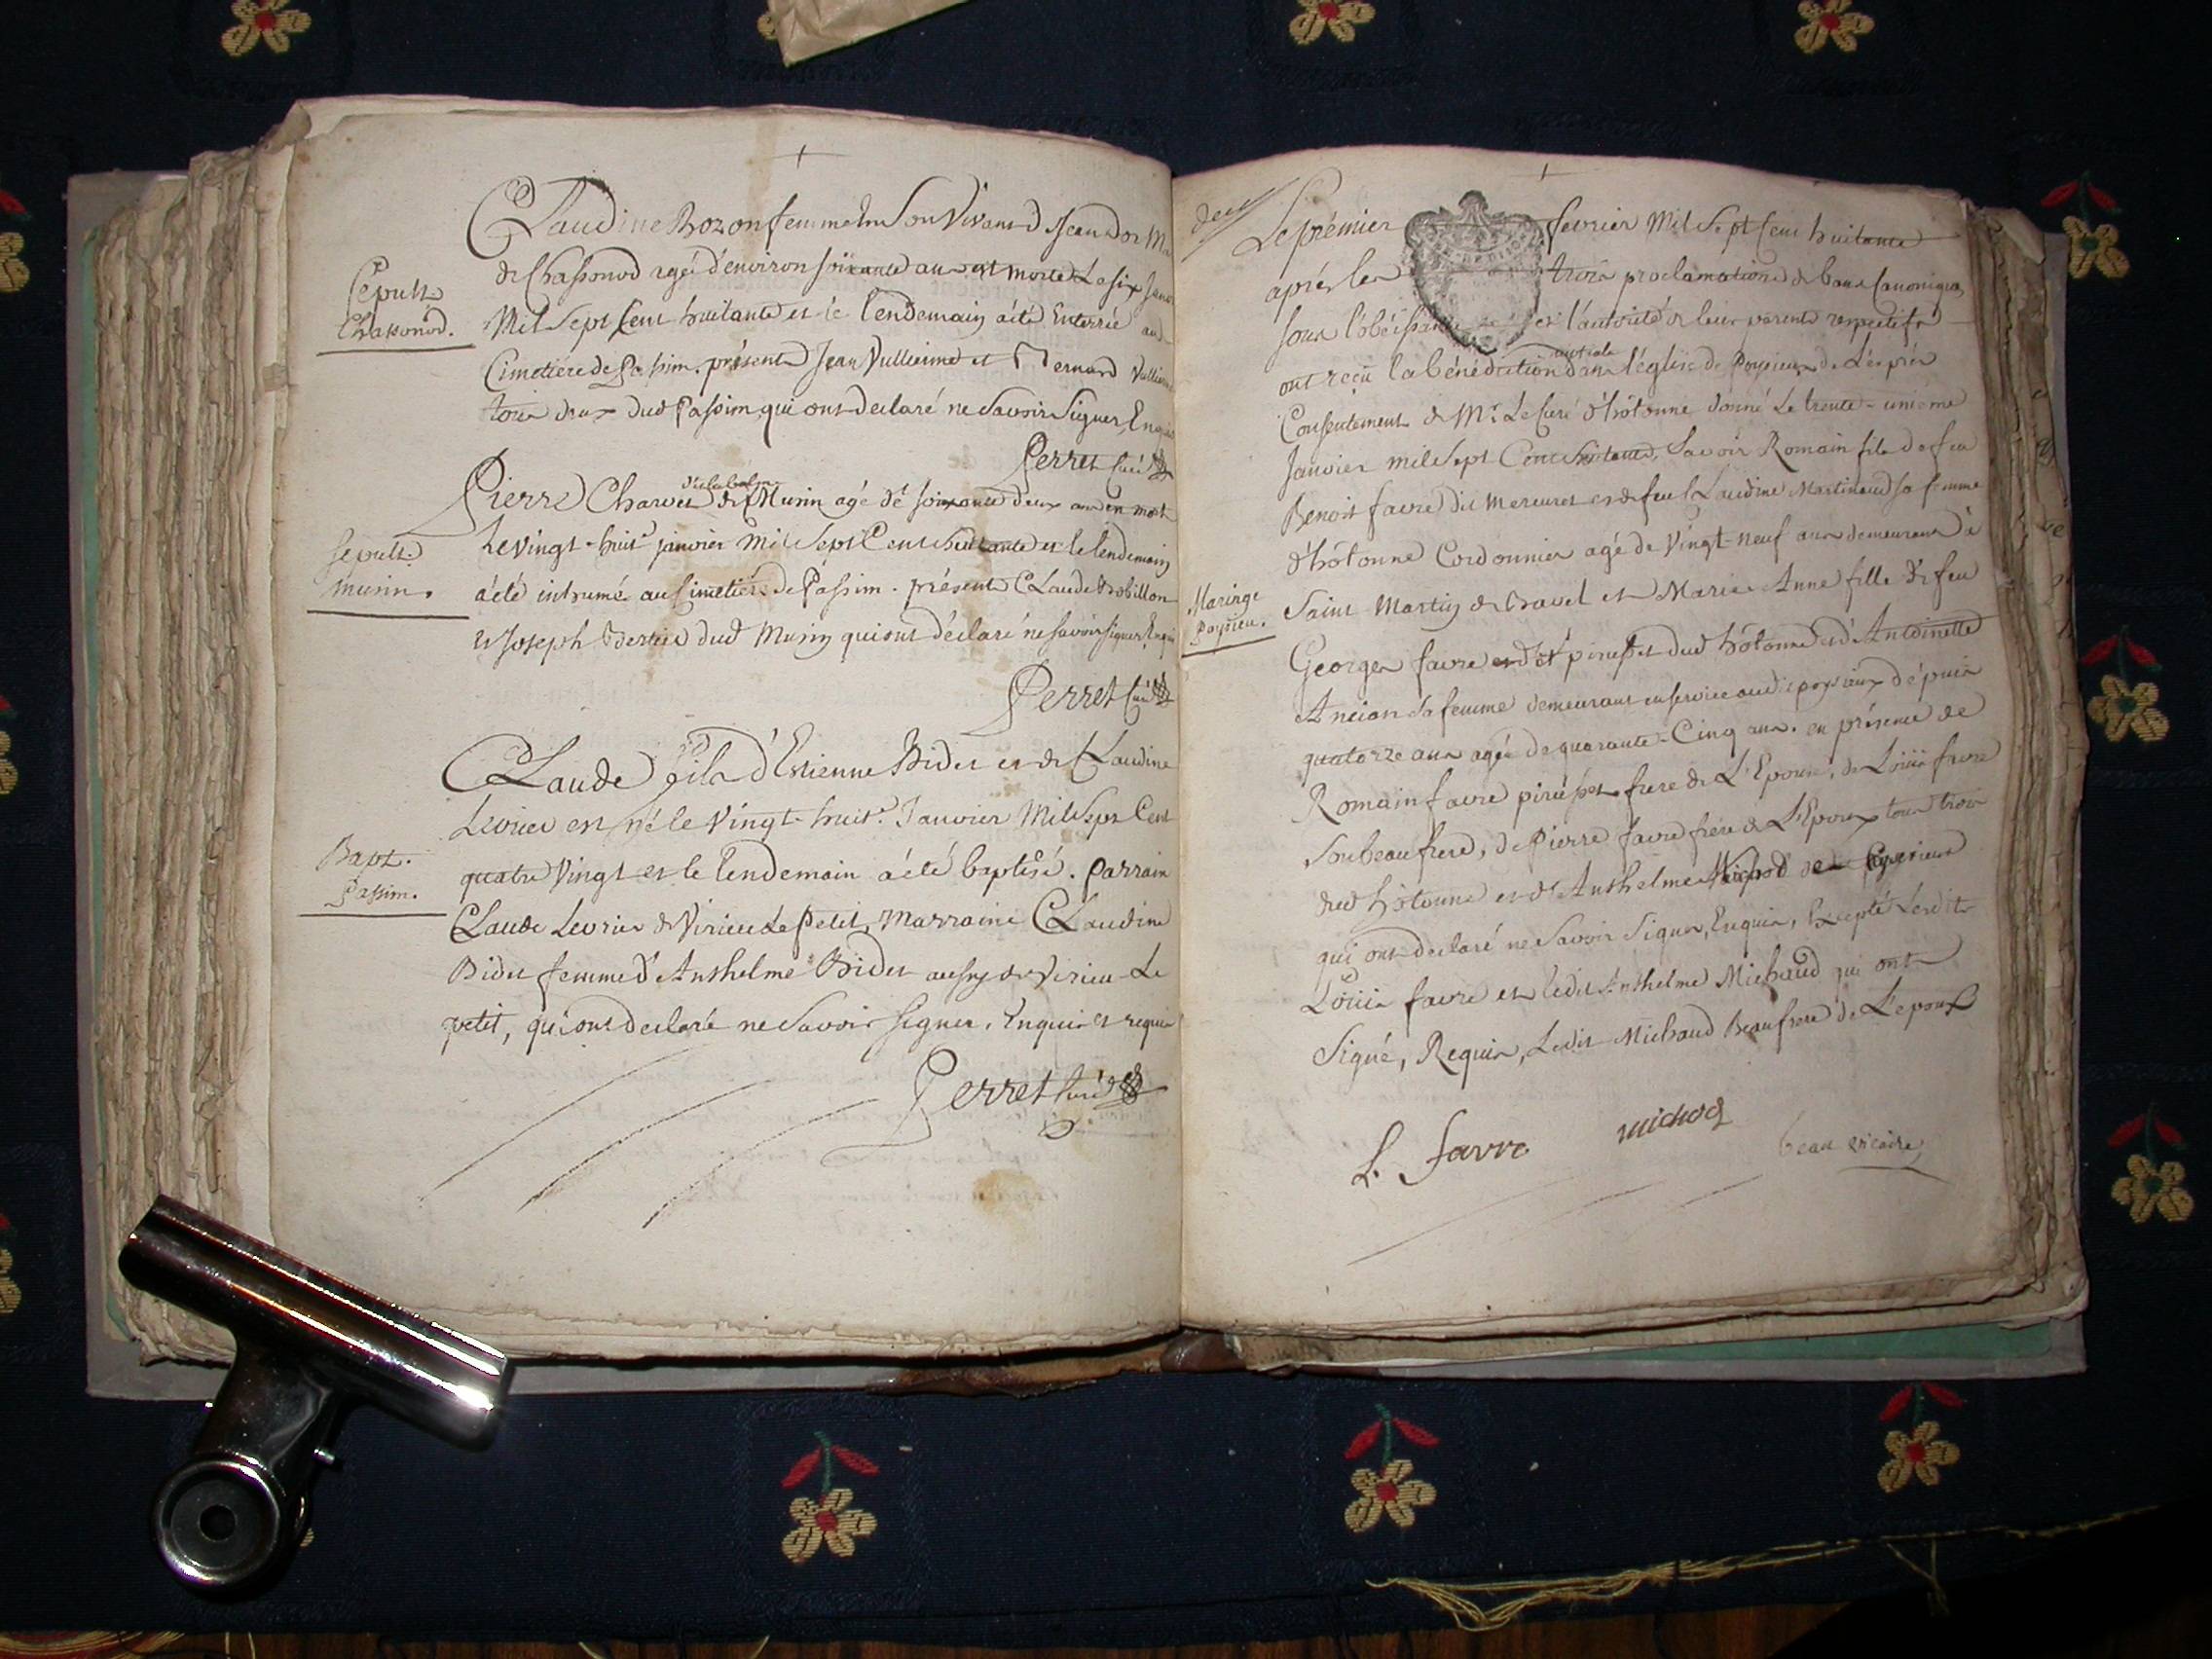 Claudine Bozon femme en son vivant d Jean dor
de Chassonod agée d'environ soixante ans est morte Le six
Mil Sept Cent huitante et le lendemain a été Enterrée au
Cimetiére de Passim. présents Jean Vullierme et Bernard
tous deux dud Passim qui ont declaré ne Savoir Signer,
Perret Curé
Sepult
Chassonod.
Pierre Charvet de Munin agé de soixante deux ans en mort
Le vingt-huit janvier Mil Sept Cent huittante et le lendemain
a été inhumé au Cimetiére de Passim. présents Claude Robillon
et Joseph dud Munin qui ont déclaré ne savoir signer,
Perret Curé
Sepult.
Munin.
Claude fils d'Etienne Bidet et de Claudine
Levrier est né le Vingt-huit. Janvier Mil Sept Cent
quatre Vingt et le lendemain a été baptisé. Parrain
Claude Levrier de Virieu Le Petit, Marraine Claudine
Bidet femme d'Anthelme Bidet aussy de Virieu-Le
petit, qui ont declaré ne Savoir signer, Enquis et requis
Perret Curé
Bapt.
Passim.
deux
Le prémier fevrier Mil Sept Cent huitante
aprés les trois proclamations de bans Canoniques
sous l'obéissance et l'autorité de leurs parents respectifs
ont reçu la bénédiction nuptiale dans l'église de
Consentement de Mr. Le Curé d'hotonne donné Le trente-unieme
Janvier mil Sept Cent huitante, Savoir Romain fils de feu
Benoit favre dit Mercuret et de feu Claudine Martinaud sa femme
d'hotonne Cordonnier agé de Vingt-neuf ans demeurant à
Saint Martin de Bavel et Marie Anne fille de feu
Georges favre dud hotonne et d'Antoinette
Ancian sa femme demeurant en service audit dépuis
quatorze ans agée de quarante-Cinq ans. en présence de
Romain favre frere de L'Epouse, de Loüis favre
Son beaufrere, de Pierre favre frere de L'Epoux tous trois
dud hotonne et d'Anthelme Michod de
qui ont declaré ne Savoir Signer, Enquis, Excepté Lesdits
Loüis favre et ledit Anthelme Michaud qui ont
Signé, Requis, Ledit Michaud Beaufrere de L'epoux
Mariage
L. favre michod
beau vicaire